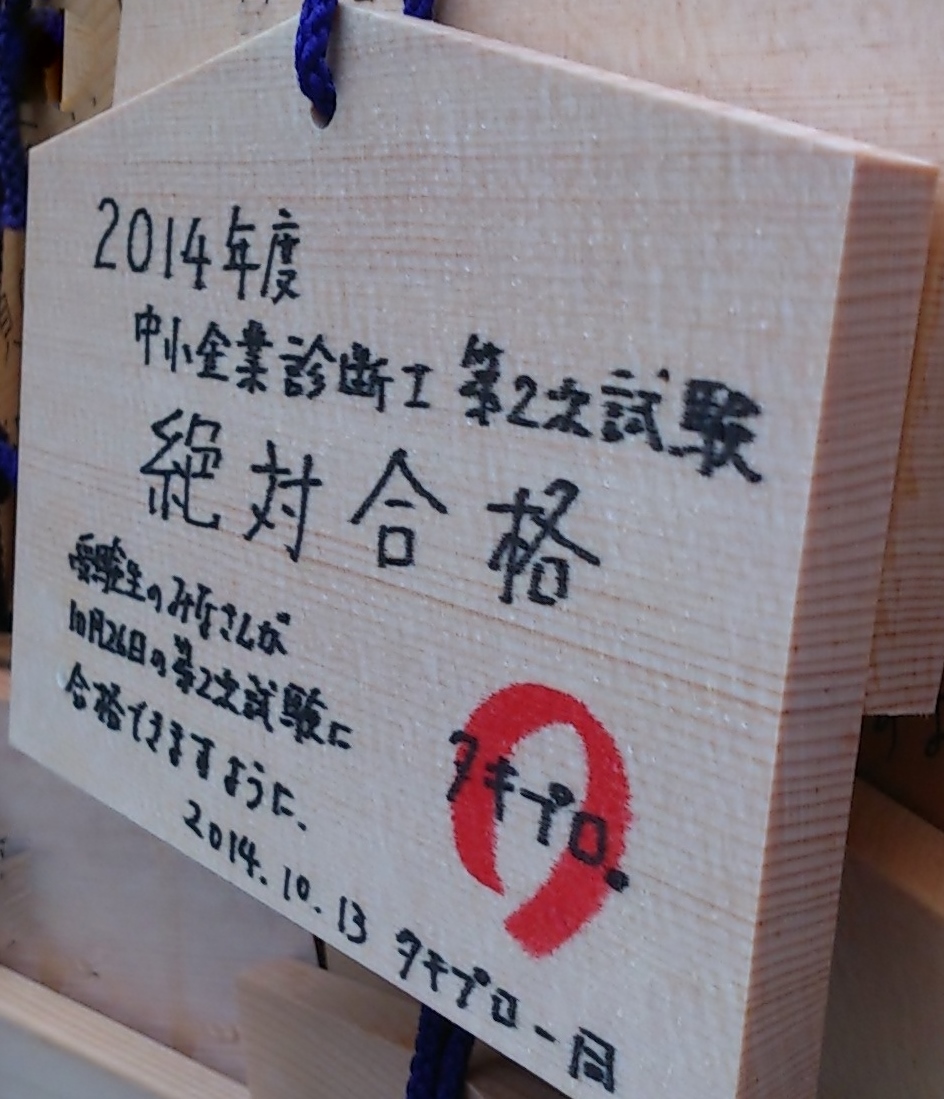 2014年度
中小企業診断士 第2次試験
絶対合格
受験生のみなさんが
10月26日の第2次試験に
合格できますように.
タキプロ.
2014.10.13 タキプロ一同